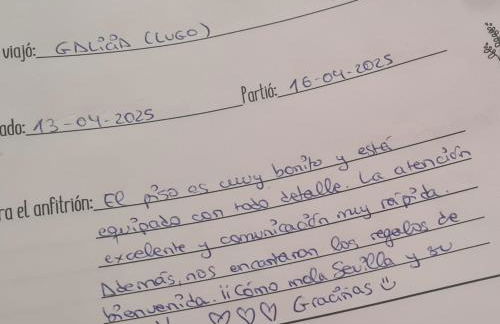 viajó: GALICIA (LUGO)
ado: 13-04-2025 Partió: 16-04-2025
ra el anfitrión: El piso es muy bonito y está
equipado con todo detalle. La atención
excelente y comunicación muy rápida.
Además, nos encantaron los regalos de
bienvenida. ¡¡Cómo mola Sevilla y su
♡♡♡ Graciñas ☺